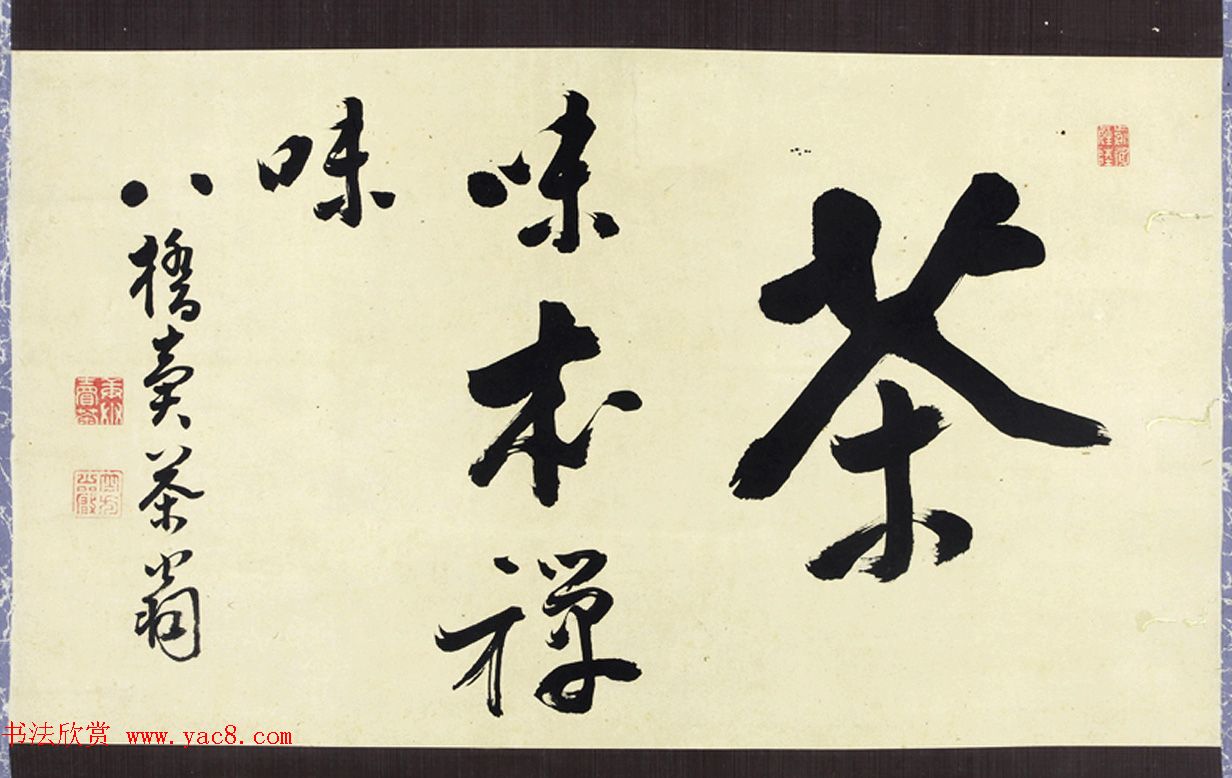 茶
味本禅
味
八橋賣茶翁
书法欣赏 www.yac8.com